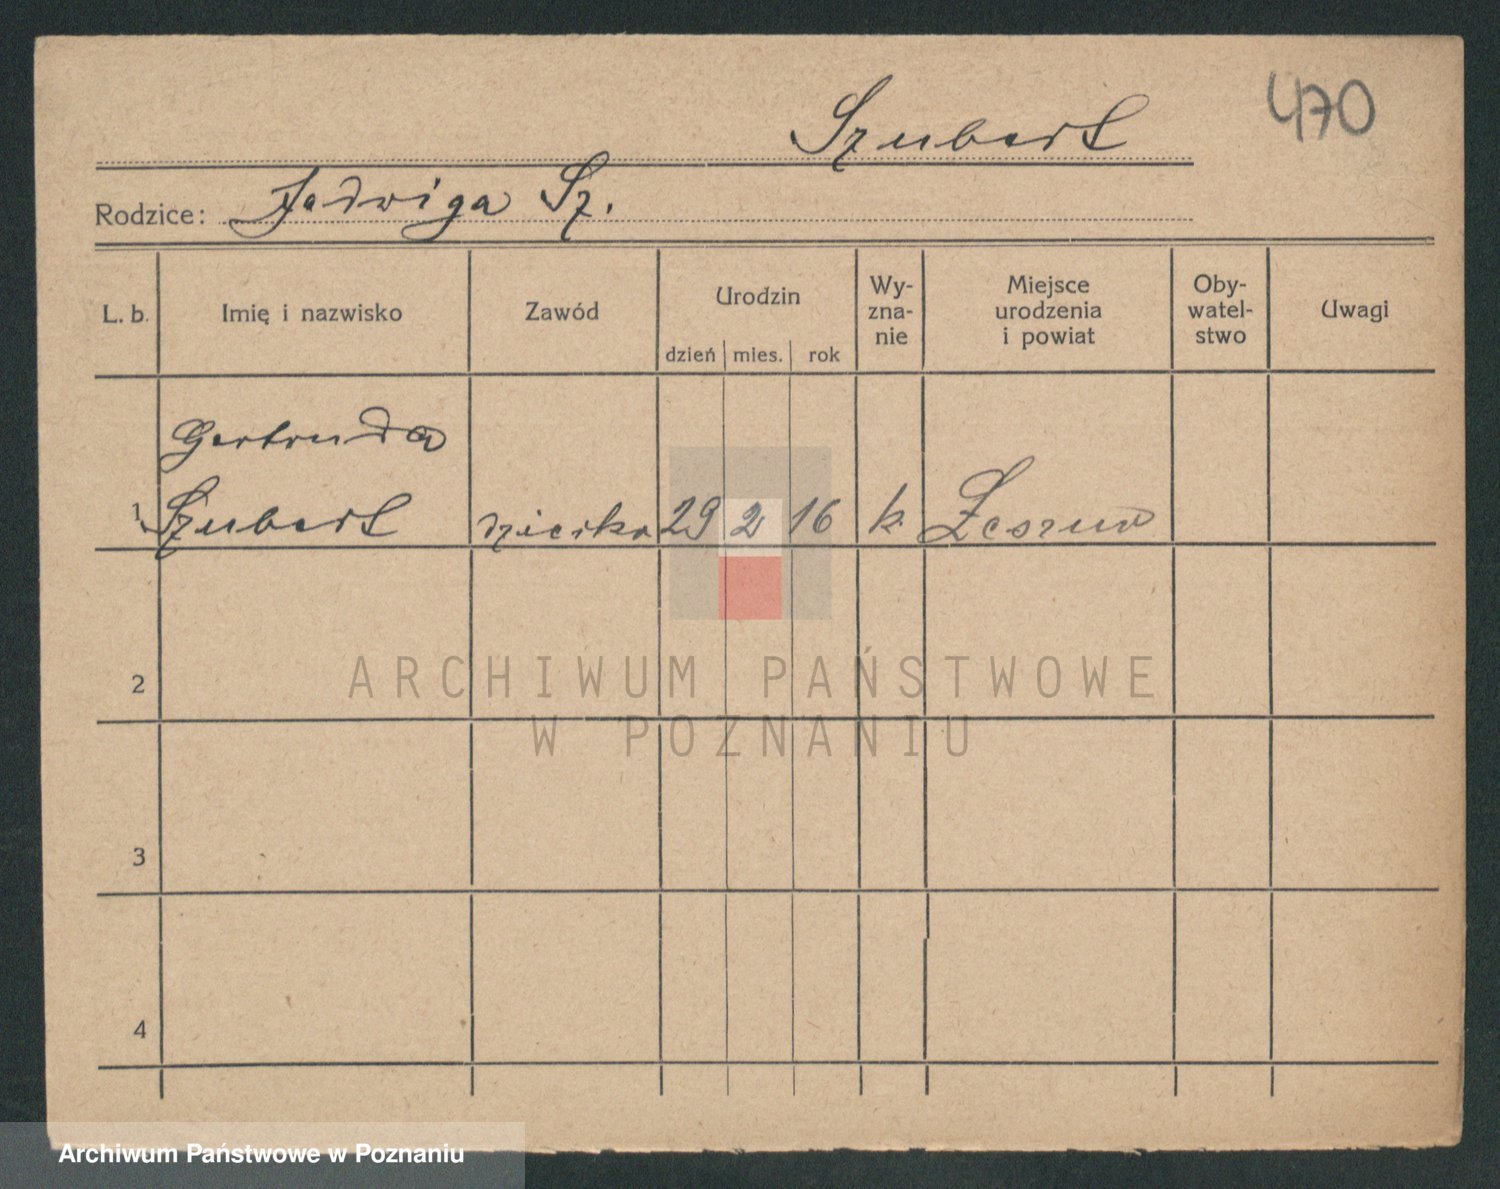 470
Szubert
Rodzice: Jadwiga Sz.
L. b. Imię i nazwisko Zawód Urodzin Wy-zna-nie Miejsce urodzenia i powiat Oby-watel-stwo Uwagi
dzień mies. rok
Gertruda
1 Szubert dziecko 29 2 16 k.
2
ARCHIWUM PAŃSTWOWE
W POZNANIU
3
4
Archiwum Państwowe w Poznaniu